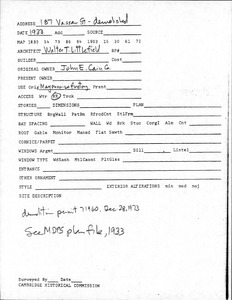 ADDRESS 187 Vassar St - demolished
DATE 1933 SOURCE
MAP 1830 54 73 86 94 1903 16 30 61 73
ARCHITECT Walter T. Littlefield BP#
BUILDER Cost
ORIGINAL OWNER John E. Cain Co
PRESENT OWNER
USE Orig Mayonnaise factory Prsnt
ACCESS Wtr RR Truck
STORIES DIMENSIONS PLAN
STRUCTURE BrgWall Pst&Bm RfrcdCnt StlFrm
BAY SPACING WALL Wd Brk Stuc CorgI Alm Cnt
ROOF Gable Monitor Mansd Flat Sawth
CORNICE/PARPET
WINDOWS Argmt Sill Lintel
WINDOW TYPE WdSash MtlCasmt PltGls
ENTRANCE
OTHER ORNAMENT
STYLE EXTERIOR ALTERATIONS min mod maj
SITE DESCRIPTION
demolition permit 71960, Dec 28, 1973
See MDPS plan file, 1933
Surveyed By Date
CAMBRIDGE HISTORICAL COMMISSION